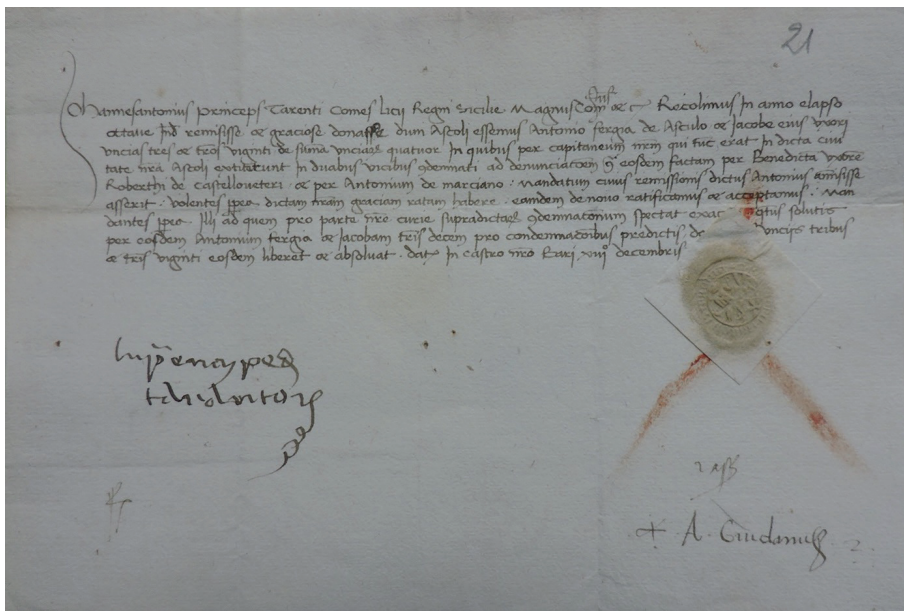 21
Ihannesantonius princeps Tarenti Comes licij Regni Sicilie Magnus Com̃ ⁊ c̃ Recolimus in anno elapso
octave Ind̃ remisisse ⁊ graciose donasse dum Ascoli essemus Antonio fergia de Asculo ⁊ Jacobe eius uxori
uncias tres ⁊ tr̃os viginti de sum̃a unciarũ quatuor in quibus per capitaneum nr̃m qui tũc erat in dicta civi
tate nr̃a Ascoli extiterunt in duabus vicibus ꝯdemnati ad denunciac̃oem ꝯ̃ eosdem factam per Benedictã uxorẽ
Roberthi de Castelloveteri · ⁊ per Antonium de marciano : mandatum cuius remissionis dictus Antonius amisisse
asserit · volentes dictam nr̃am graciam ratam habere · eamdem de novo ratificamus ⁊ acceptamus · Man
dantes illi ad quem pro parte nr̃e curie supradictarũ ꝯdemnationum spectat solutis
per eosdem Antonium fergia ⁊ Jacobam tr̃is decem pro condemnac̃onibus predictis de uncijs tribus
⁊ tr̃is viginti eosdem liberet ⁊ absolvat · dat̃ in castro nr̃o decembris
A · Guidanus